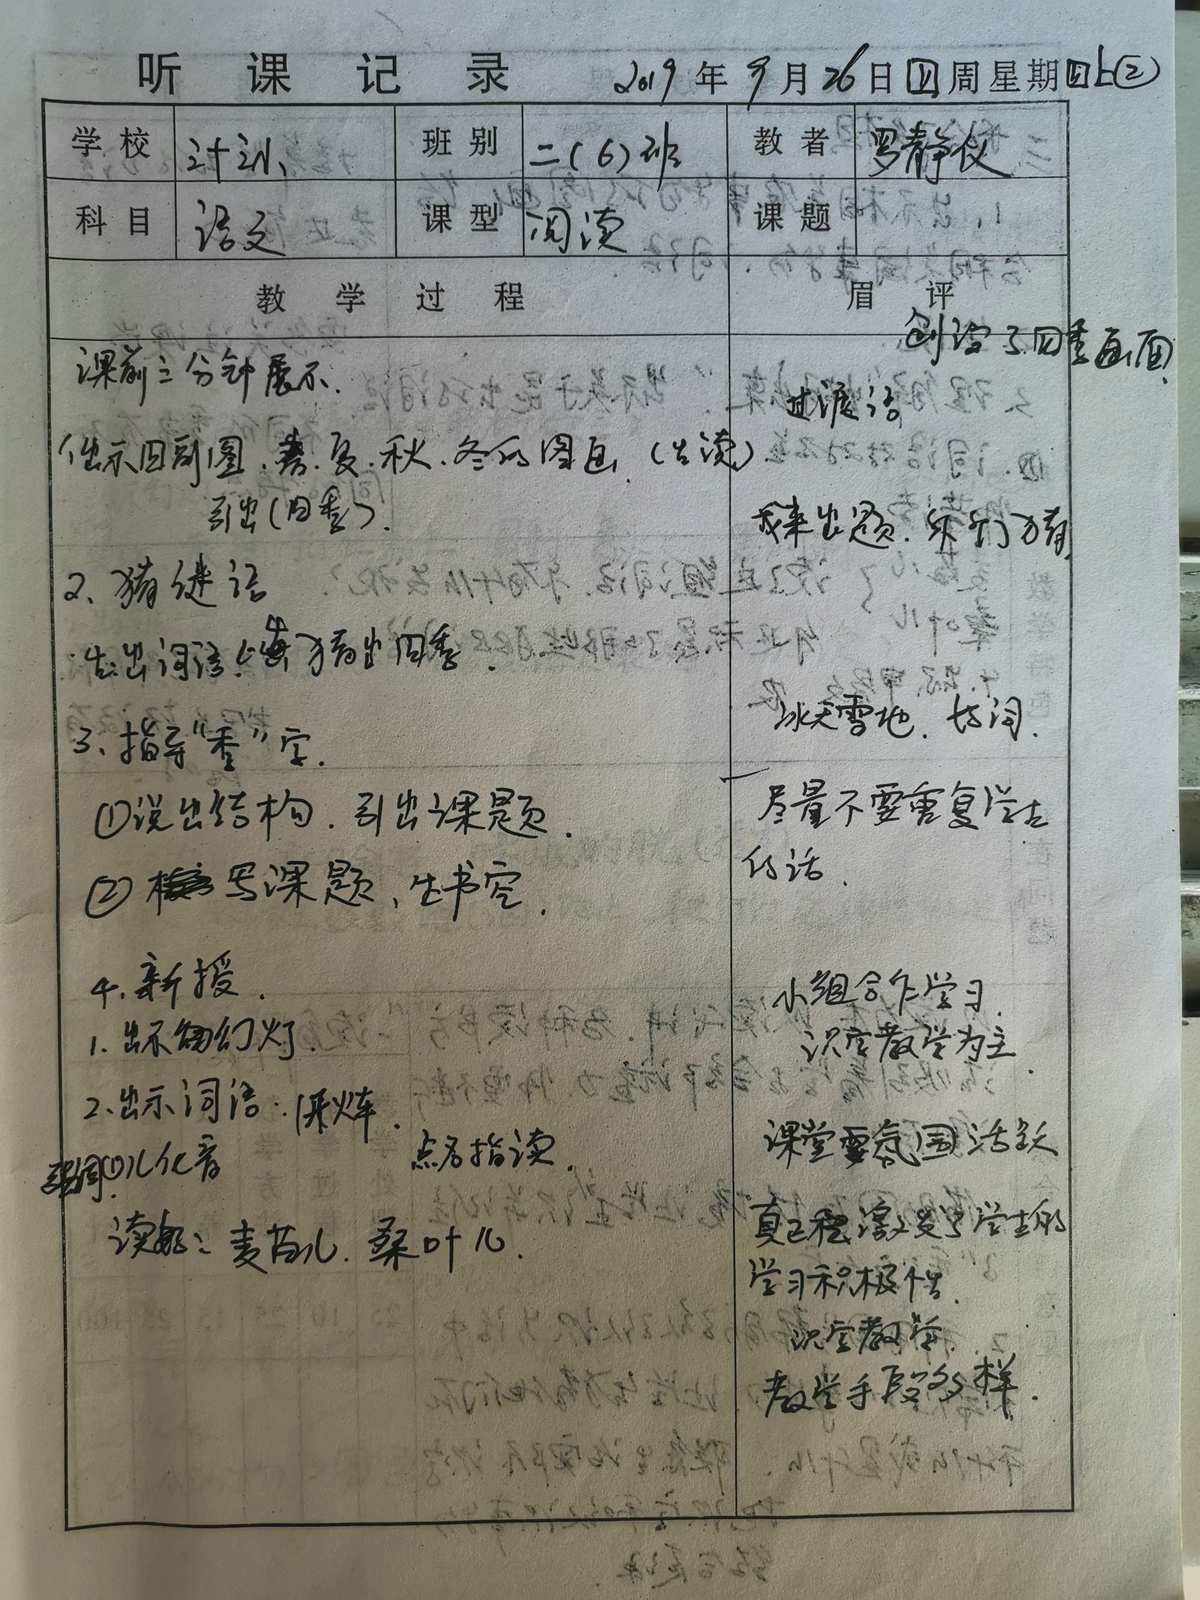 听课记录 2019年9月26日四周星期四上②
学校 计训、 班别 二(6)班 教者 罗静仪
科目 语文 课型 阅读 课题
教学过程 眉评
创设了四季画面
课前三分钟展示.
过渡语
1、出示四副图.春.夏.秋.冬的图画.(生读)
引出(四季).
我来出题.你们猜
2、猜谜语
生出词语,生猜出四季.
冰天雪地.材词.
3、指导“季”字.
①说出结构.引出课题.
尽量不要重复学生
的话.
②写课题,生书空.
4、新授.
小组合作学习
1.出示幻灯.
识字教学为主.
2.出示词语.开火车.
课堂氛围活跃
①儿化音 点名指读.
真正激发了学生的
读好:麦苗儿.桑叶儿.
学习积极性.
识字教学.
教学手段多样.